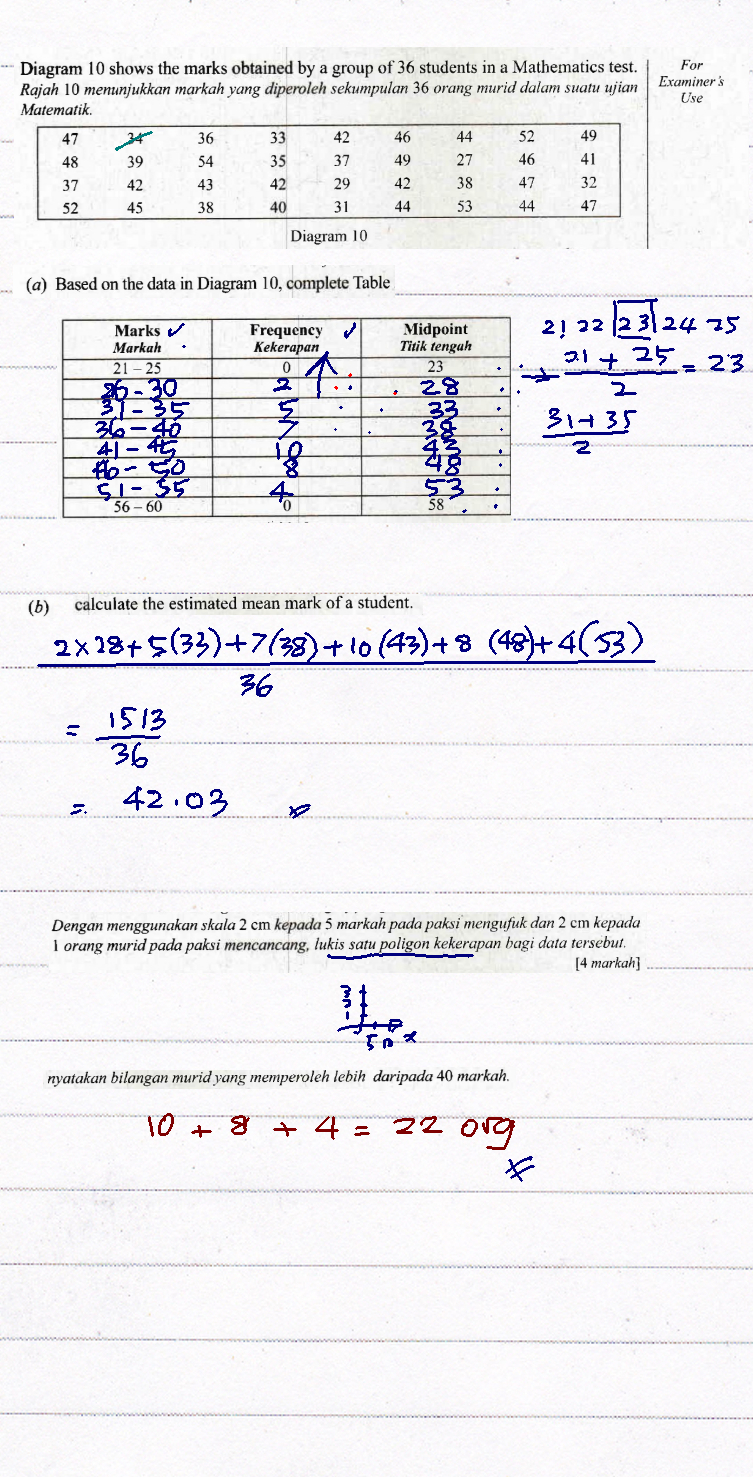 Diagram 10 shows the marks obtained by a group of 36 students in a Mathematics test.
Rajah 10 menunjukkan markah yang diperoleh sekumpulan 36 orang murid dalam suatu ujian
Matematik.
For
Examiner's
Use
47 34 36 33 42 46 44 52 49
48 39 54 35 37 49 27 46 41
37 42 43 42 29 42 38 47 32
52 45 38 40 31 44 53 44 47
Diagram 10
(a) Based on the data in Diagram 10, complete Table
Marks Frequency Midpoint
Markah Kekerapan Titik tengah
21 – 25 0 23
26 - 30 2 28
31 - 35 5 33
36 - 40 7 38
41 - 45 10 43
46 - 50 8 48
51 - 55 4 53
56 – 60 0 58
21 22 23 24 25
21 + 25 = 23
2
31 + 35
2
(b) calculate the estimated mean mark of a student.
2 × 28 + 5(33) + 7(38) + 10(43) + 8 (48) + 4(53)
36
= 1513
36
= 42.03
Dengan menggunakan skala 2 cm kepada 5 markah pada paksi mengufuk dan 2 cm kepada
1 orang murid pada paksi mencancang, lukis satu poligon kekerapan bagi data tersebut.
[4 markah]
3
2
1
5 10 x
nyatakan bilangan murid yang memperoleh lebih daripada 40 markah.
10 + 8 + 4 = 22 org